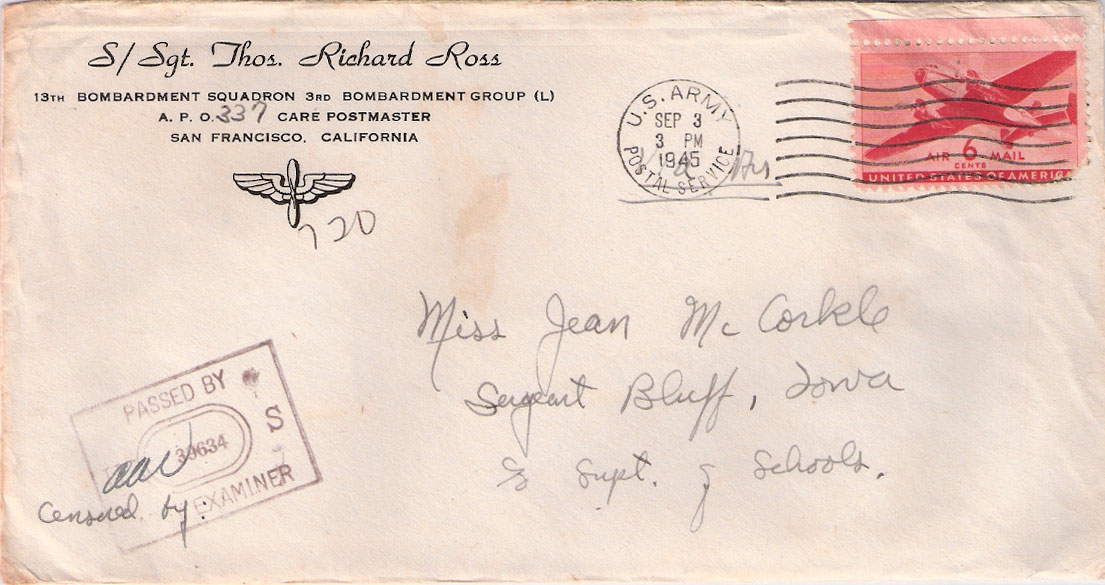 S/Sgt. Thos. Richard Ross
13TH BOMBARDMENT SQUADRON 3RD BOMBARDMENT GROUP (L)
A. P. O. 337 CARE POSTMASTER
SAN FRANCISCO, CALIFORNIA
720
U.S. ARMY
SEP 3
3 PM
1945
POSTAL SERVICE
AIR 6 MAIL
CENTS
UNITED STATES OF AMERICA
Miss Jean McCorkle
Sergeant Bluff, Iowa
% Supt. of Schools.
PASSED BY
S
39634
EXAMINER
Censored by: